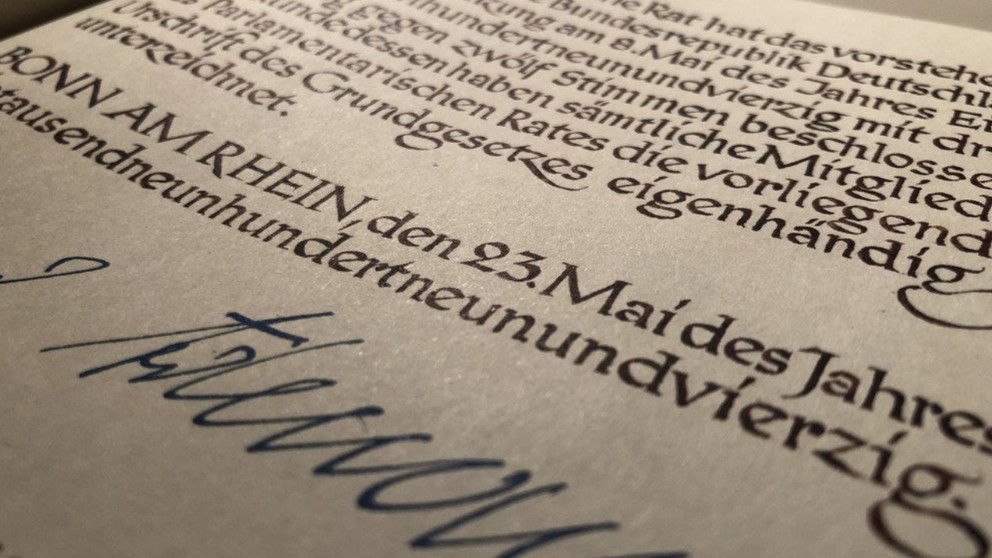 Rat hat das vorstehe
Bundesrepublik Deutschl
am 8. Mai des Jahres Ei
hundertneunundvierzig mit dr
gegen zwölf Stimmen beschlosse
dessen haben sämtliche Mitglied
Parlamentarischen Rates die vorliegend
Urschrift des Grundgesetzes eigenhändig
unterzeichnet.
BONN AM RHEIN, den 23. Mai des Jahres
tausendneunhundertneunundvierzig.